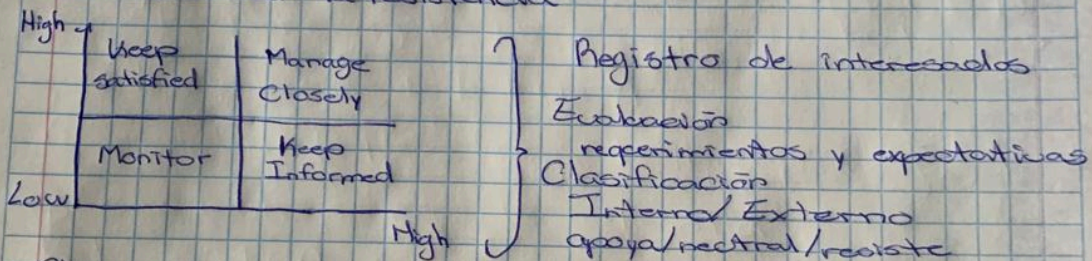 High
Keep
satisfied
Manage
Closely
Monitor
Keep
Informed
Low
High
Registro de interesados
Evaluación
requerimientos y expectativas
Clasificación
Interno/Externo
apoya/neutral/resiste